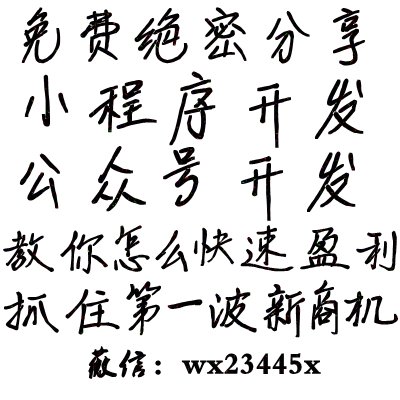 免费绝密分享
小程序开发
公众号开发
教你怎么快速盈利
抓住第一波新商机
薇信：wx23445x